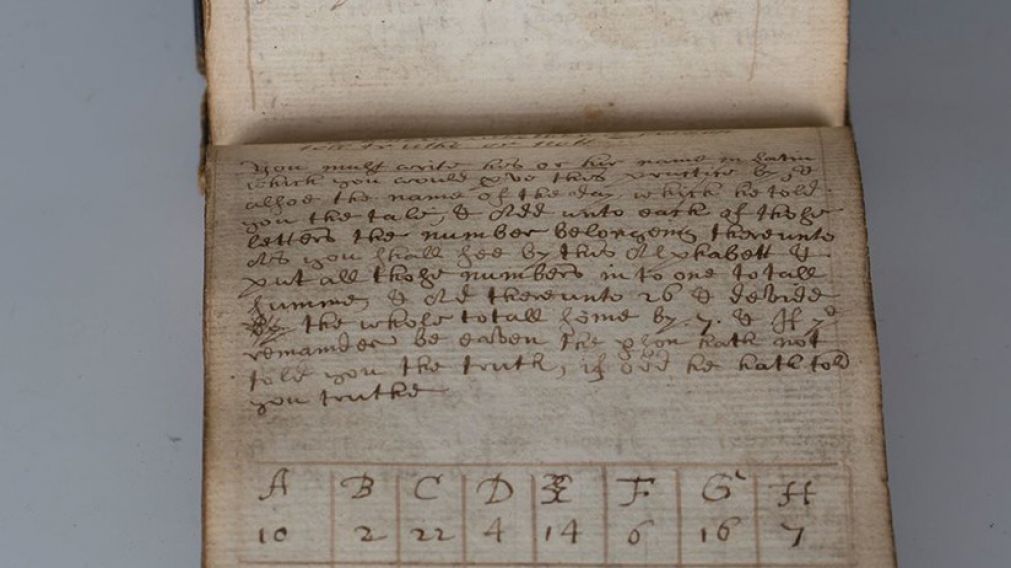 tell truthe or nott
you must write his or hir name in Latin
which you would prve this practise by, &
alsoe the name of the day which he told
you the tale, & Add unto each of those
letters the number belongeng thereunto
As you shall see by this Alphabett &
put all those numbers in to one totall
summe, & Ad thereunto 26 & devide
the whole totall some by .7. & If ye
remainder be eaven the pson hath not
told you the truth, if odd he hath told
you truthe
A B C D E F G H
10 2 22 4 14 6 16 7